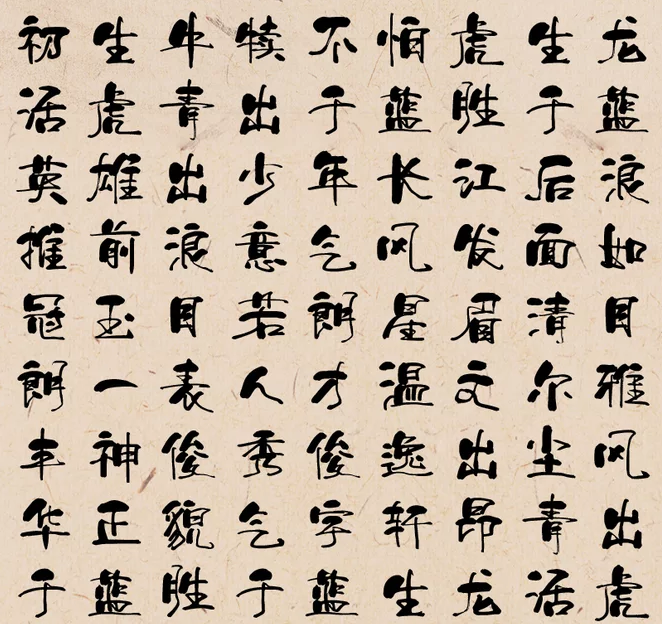 初生牛犊不怕虎生龙
活虎青出于蓝胜于蓝
英雄出少年长江后浪
推前浪意气风发面如
冠玉目若朗星眉清目
朗一表人才温文尔雅
丰神俊秀俊逸出尘风
华正貌气宇轩昂青出
于蓝胜于蓝生龙活虎